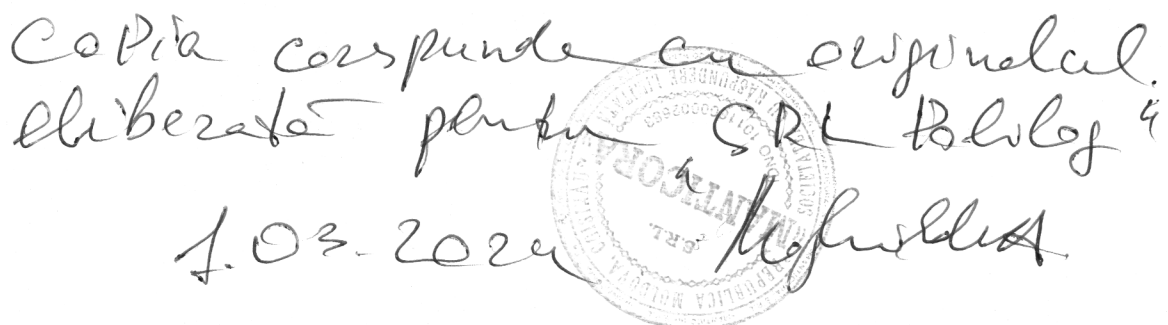 Copia corspunde cu originalul.
eliberată pentru "SRL Polilog"
1.03.2024
MANTICORA
S.R.L.
REPUBLICA MOLDOVA